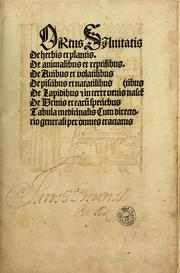 Ortus Sanitatis
De herbis et plantis.
De animalibus et reptilibus.
De Auibus et volatilibus
De piscibus et natatilibus (tibus
De Lapidibus ⁊ in terre venis nascē
De Urinis et earū speciebus
Tabula medicinalis Cum directo-
rio generali per omnes tractatus